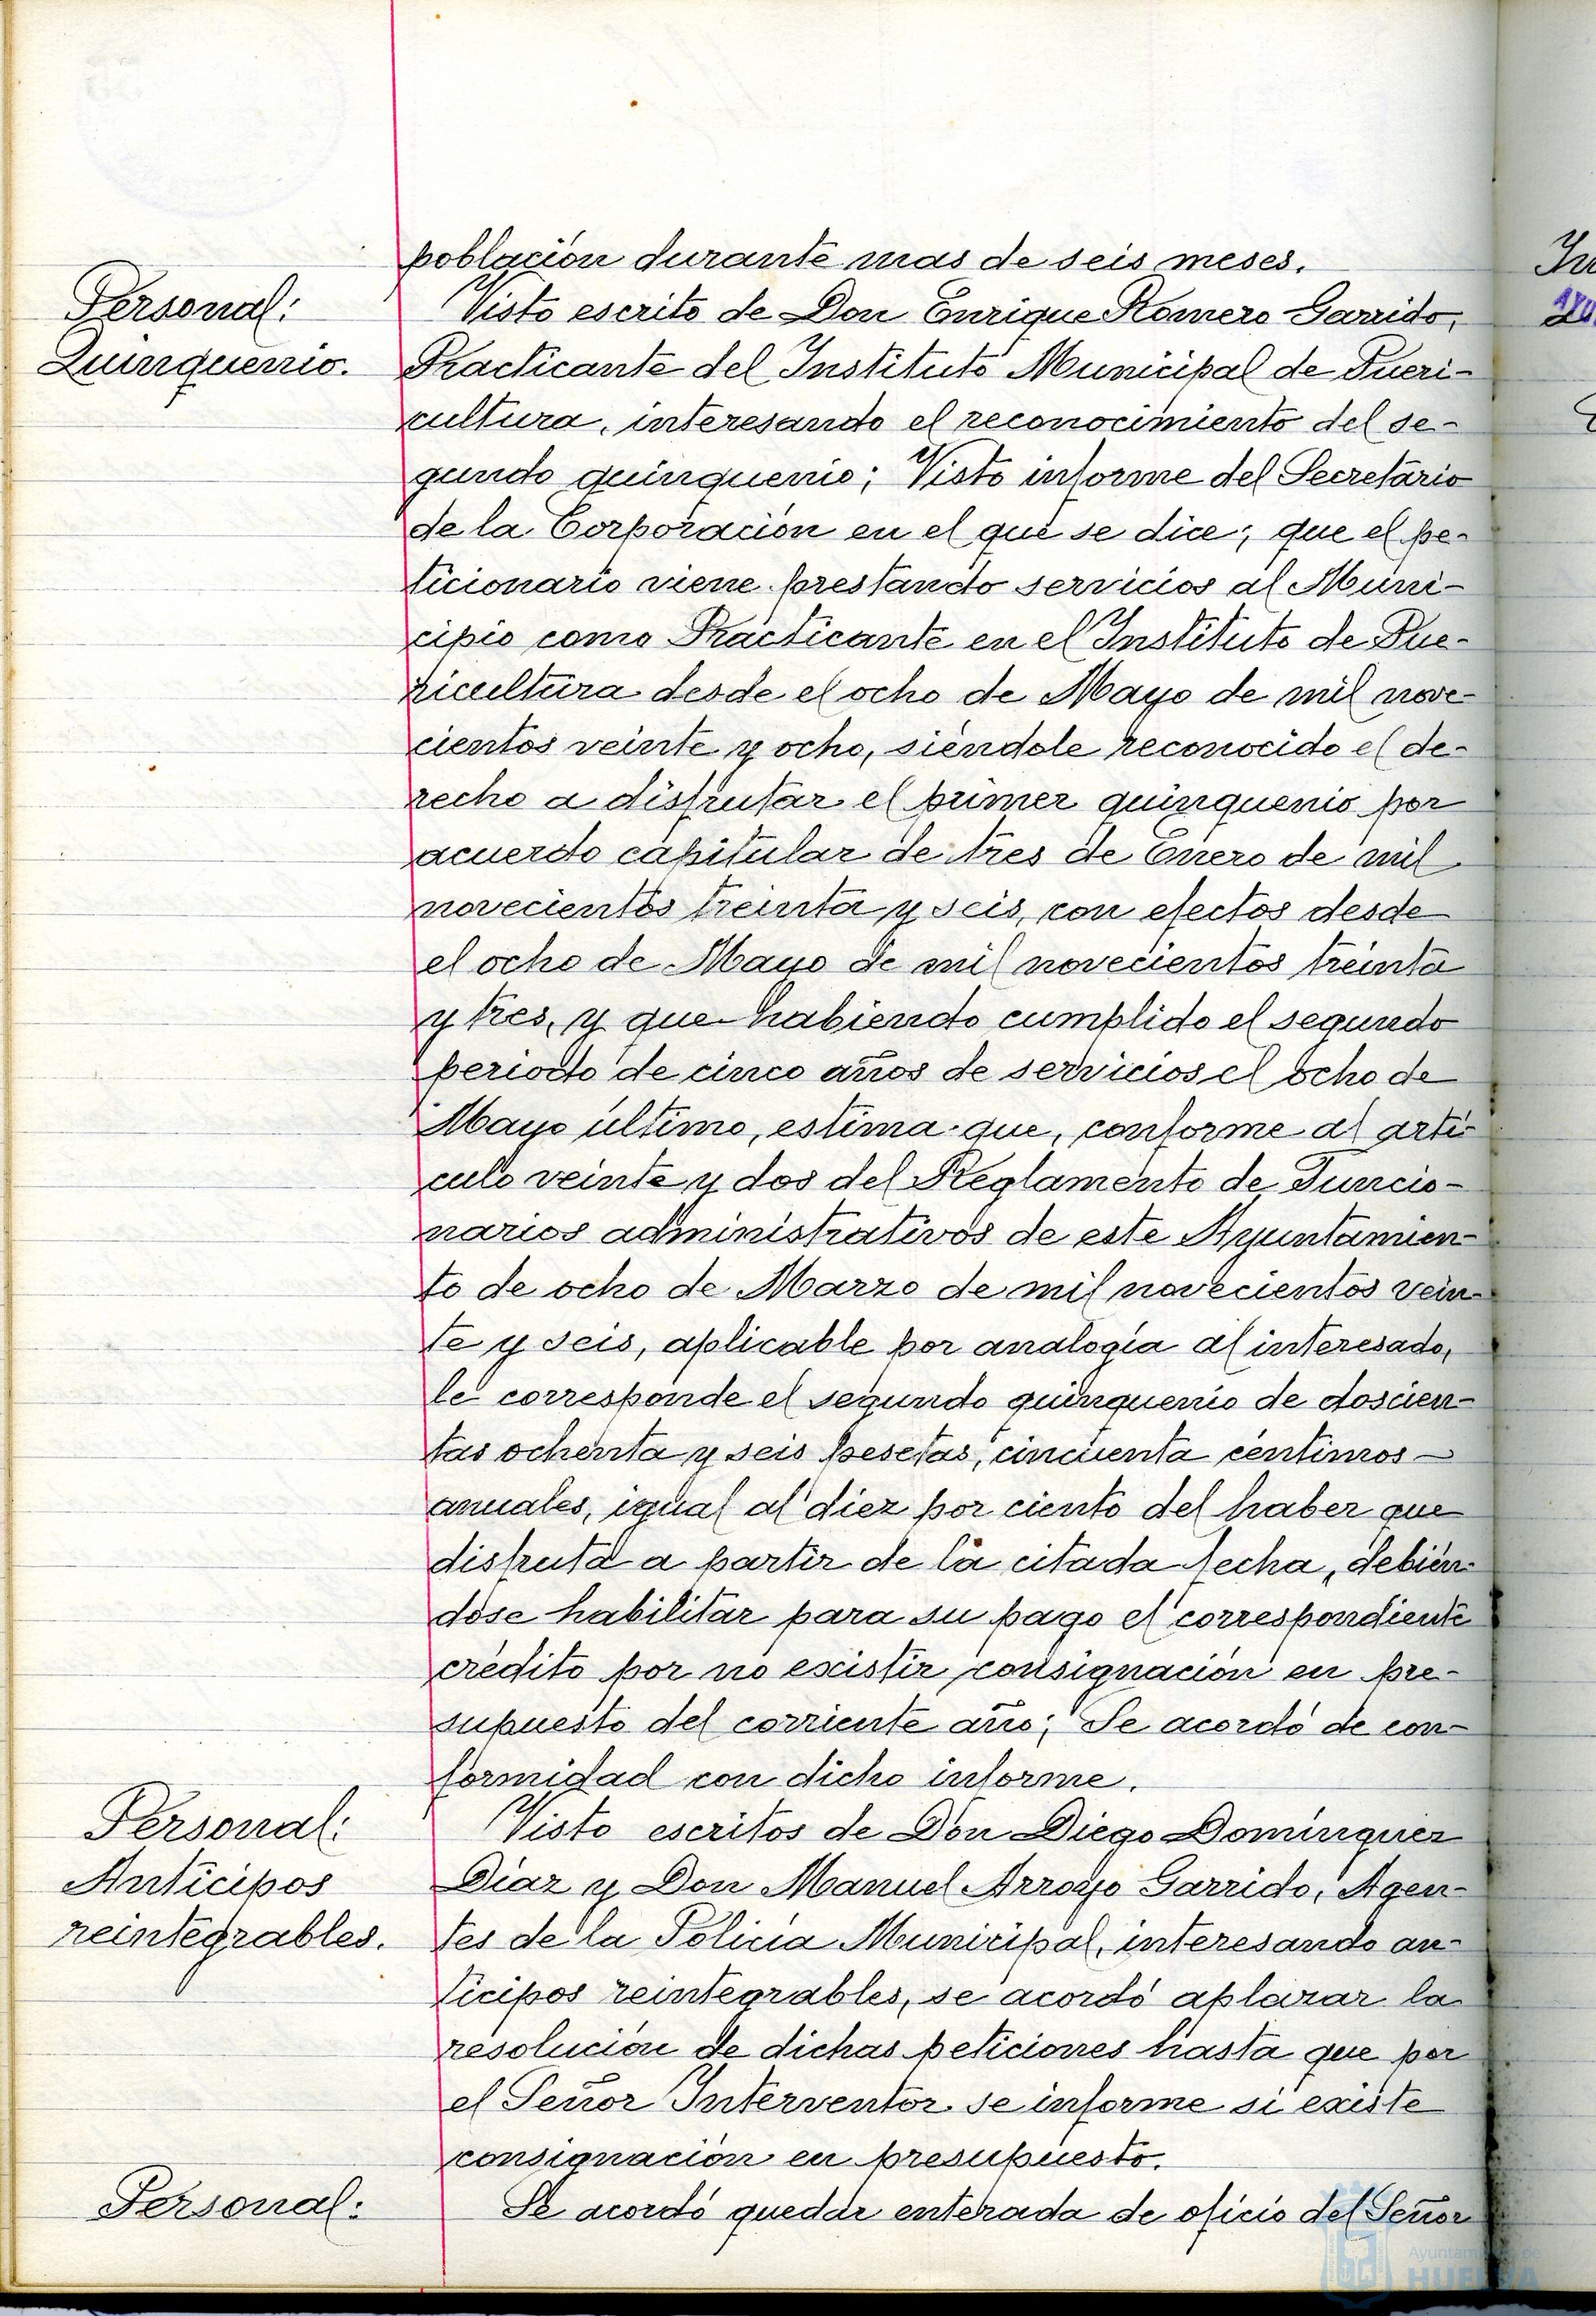 población durante mas de seis meses.
Personal:
Quinquenio.
Visto escrito de Don Enrique Romero Garrido,
Practicante del Instituto Municipal de Pueri-
cultura, interesando el reconocimiento del se-
gundo quinquenio; Visto informe del Secretario
de la Corporación en el que se dice; que el pe-
ticionario viene prestando servicios al Muni-
cipio como Practicante en el Instituto de Pue-
ricultura desde el ocho de Mayo de mil nove-
cientos veinte y ocho, siéndole reconocido el de-
recho a disfrutar el primer quinquenio por
acuerdo capitular de tres de Enero de mil
novecientos treinta y seis, con efectos desde
el ocho de Mayo de mil novecientos treinta
y tres, y que habiendo cumplido el segundo
periodo de cinco años de servicios el ocho de
Mayo último, estima que, conforme al artí-
culo veinte y dos del Reglamento de Funcio-
narios administrativos de este Ayuntamien-
to de ocho de Marzo de mil novecientos vein-
te y seis, aplicable por analogía al interesado,
le corresponde el segundo quinquenio de doscien-
tas ochenta y seis pesetas, cincuenta centimos
anuales, igual al diez por ciento del haber que
disfruta a partir de la citada fecha, debién-
dose habilitar para su pago el correspondiente
crédito por no existir consignación en pre-
supuesto del corriente año; Se acordó de con-
formidad con dicho informe.
Personal:
Anticipos
reintegrables.
Visto escritos de Don Diego Domínguez
Diaz y Don Manuel Arroyo Garrido, Agen-
tes de la Policía Municipal, interesando an-
ticipos reintegrables, se acordó aplazar la
resolución de dichas peticiones hasta que por
el Señor Interventor se informe si existe
consignación en presupuesto.
Personal:
Se acordó quedar enterada de oficio del Señor
Ayuntamiento de
HUELVA